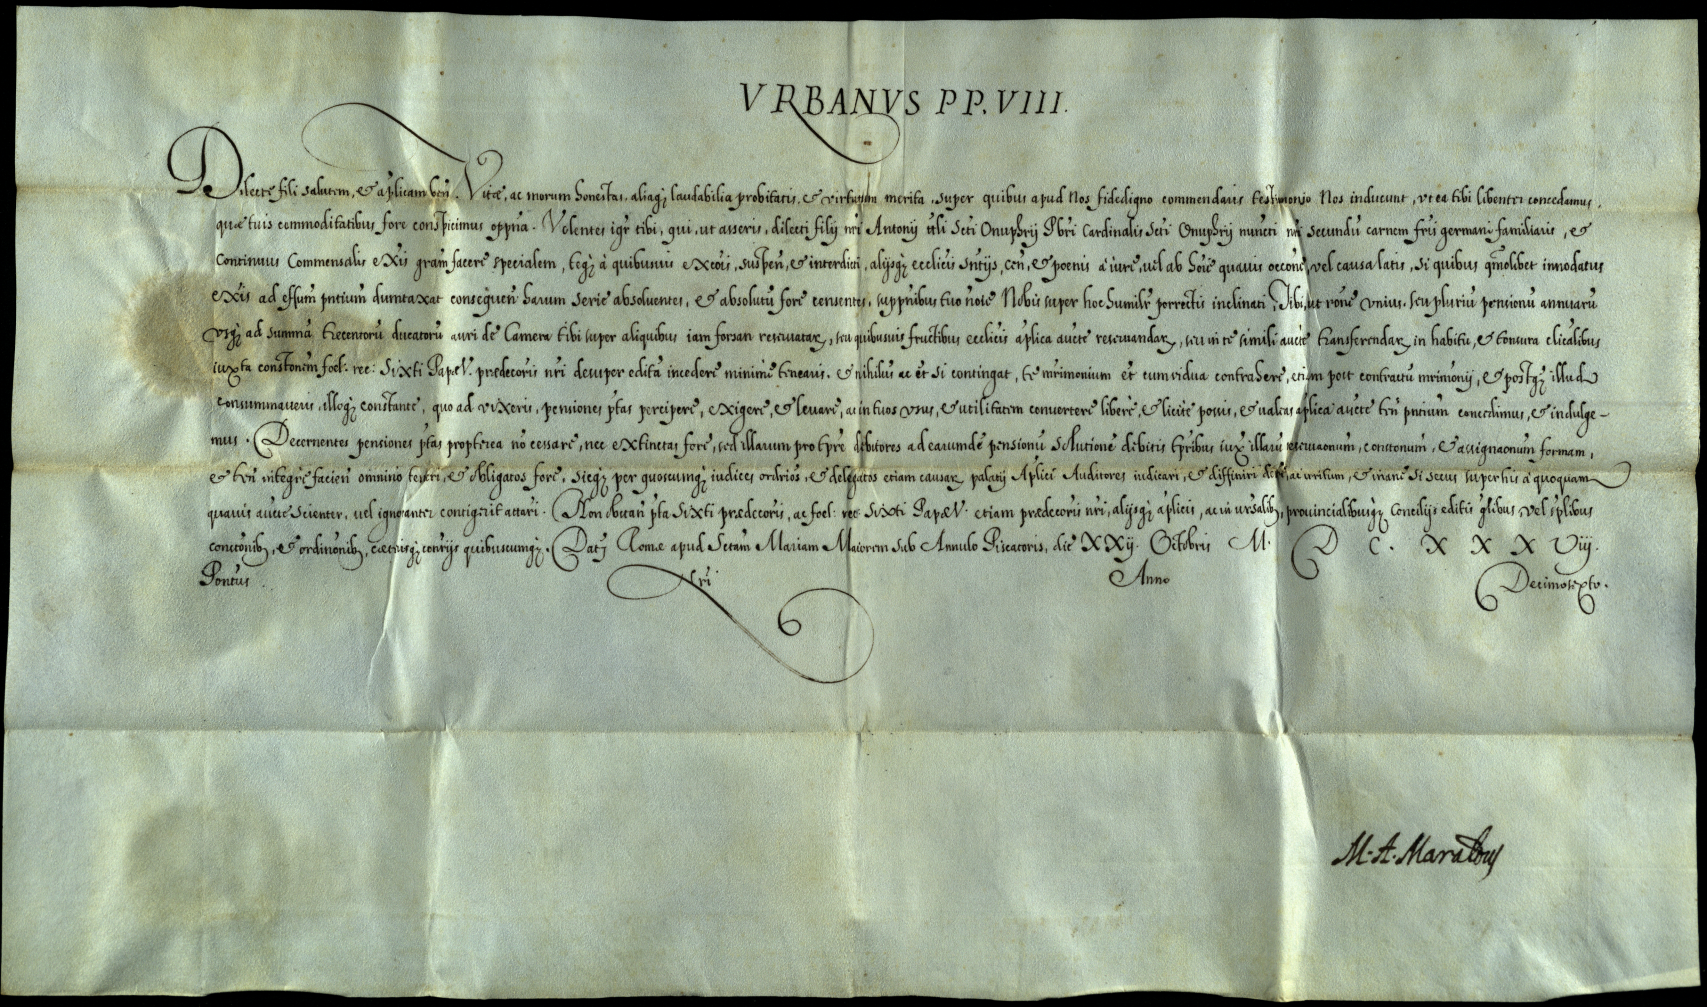 VRBANVS PP. VIII.
Dilecte fili salutem, & aplicam bctn. Vitæ, ac morum honestas, aliaq; laudabilia probitatis, & virtutum merita, super quibus apud Nos fidedigno commendaris testimonio Nos inducunt, ut ea tibi libenter concedamus,
quæ tuis commoditatibus fore conspicimus oppna. Volentes igr tibi, qui, ut asseris, dilecti filij nri Antonij ttli Scti Onuphrij Pbri Cardinalis Scti Onuphrij nuncti nri secundu carnem fris germani familiaris, &
continuus Commensalis exis gram facere specialem, teq; à quibusuis excois, suspen, & interdicti, alijsq; ecclicis sntijs, cen, & poenis à iure, uel ab hoie quauis occone, vel causa latis, si quibus qmolibet innodatus
exis ad effum pntium dumtaxat consequen harum serie absoluentes, & absolutu fore censentes, suppnibus tuo noie Nobis super hoc humilr porrectis inclinati, Tibi, ut rone unius, seu plurium pensionu annuaru
usq; ad summa trecentoru ducatoru auri de Camera tibi super aliquibus iam forsan reseruatar, seu quibusuis fructibus ecclicis aplica aucte reseruandar, seu in te simili aucte transferendar in habitu, & tonsura clicalibus
iuxta constonem foel: rec: Sixti Papæ V. prædecoris nri desuper edita incedere minime tenearis, & nihilus ac et si contingat, te mrimonium et cum vidua contrahere, etiam post contractu mrimonij, & postq; illud
consummaueris, illoq; constante, quo ad vixeris, pensiones ptas percipere, exigere, & leuare, ac in tuos usus, & utilitatem conuertere libere, & licite possis, & ualeas aplica aucte tn pntium concedimus, & indulge-
mus. Decernentes pensiones ptas propterea no cessare, nec extinctas fore, sed illarum pro tpre debitores ad earumde pensionu solutione debitis tpribus iux illaru reseruaonum, constonum, & assignaonum formam,
& tn integre facien omnino teneri, & obligatos fore, sicq; per quoscumq; iudices ordrios, & delegatos etiam causar palatij Aplici Auditores iudicari, & diffiniri debe, ac irritum, & inane si secus super his à quoquam
quauis aucte scienter, uel ignoranter contigerit attari. Non obstan pta Sixti prædecoris, ac foel: rec: Sixti Papæ V. etiam prædecoris nri, alijsq; aplicis, ac in ursalib, prouincialibusq; Concilijs editis glibus, vel splibus
constonib, & ordinonib, cæterisq; conrijs quibuscumq;. Dat Romæ apud Sctam Mariam Maiorem sub Annulo Piscatoris, die XXij. Octobris M. D C. X X X Viij.
Pontus nri Anno Decimosexto.
M. A. Maraldus